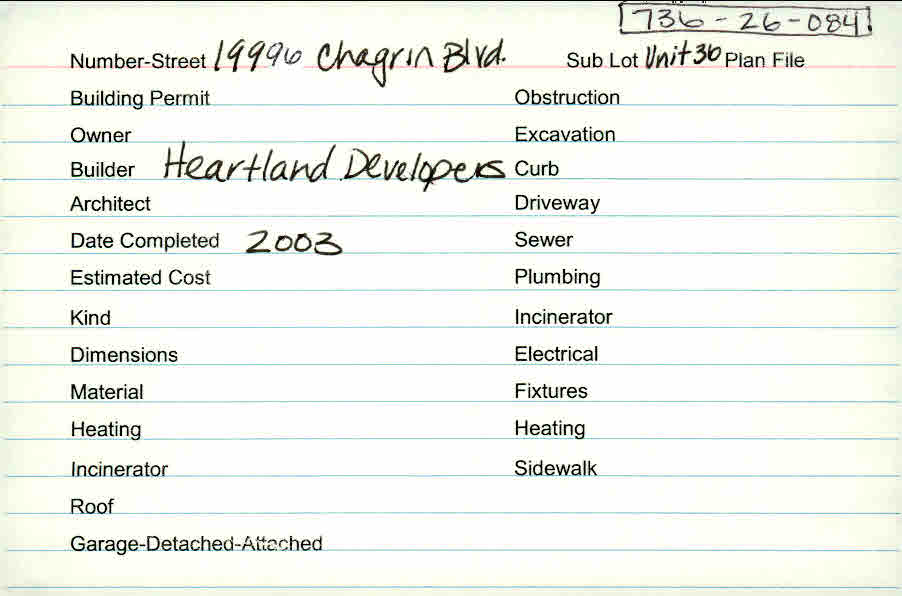 736-26-084
Number-Street 19996 Chagrin Blvd. Sub Lot Unit 36 Plan File
Building Permit Obstruction
Owner Excavation
Builder Heartland Developers Curb
Architect Driveway
Date Completed 2003 Sewer
Estimated Cost Plumbing
Kind Incinerator
Dimensions Electrical
Material Fixtures
Heating Heating
Incinerator Sidewalk
Roof
Garage-Detached-Attached